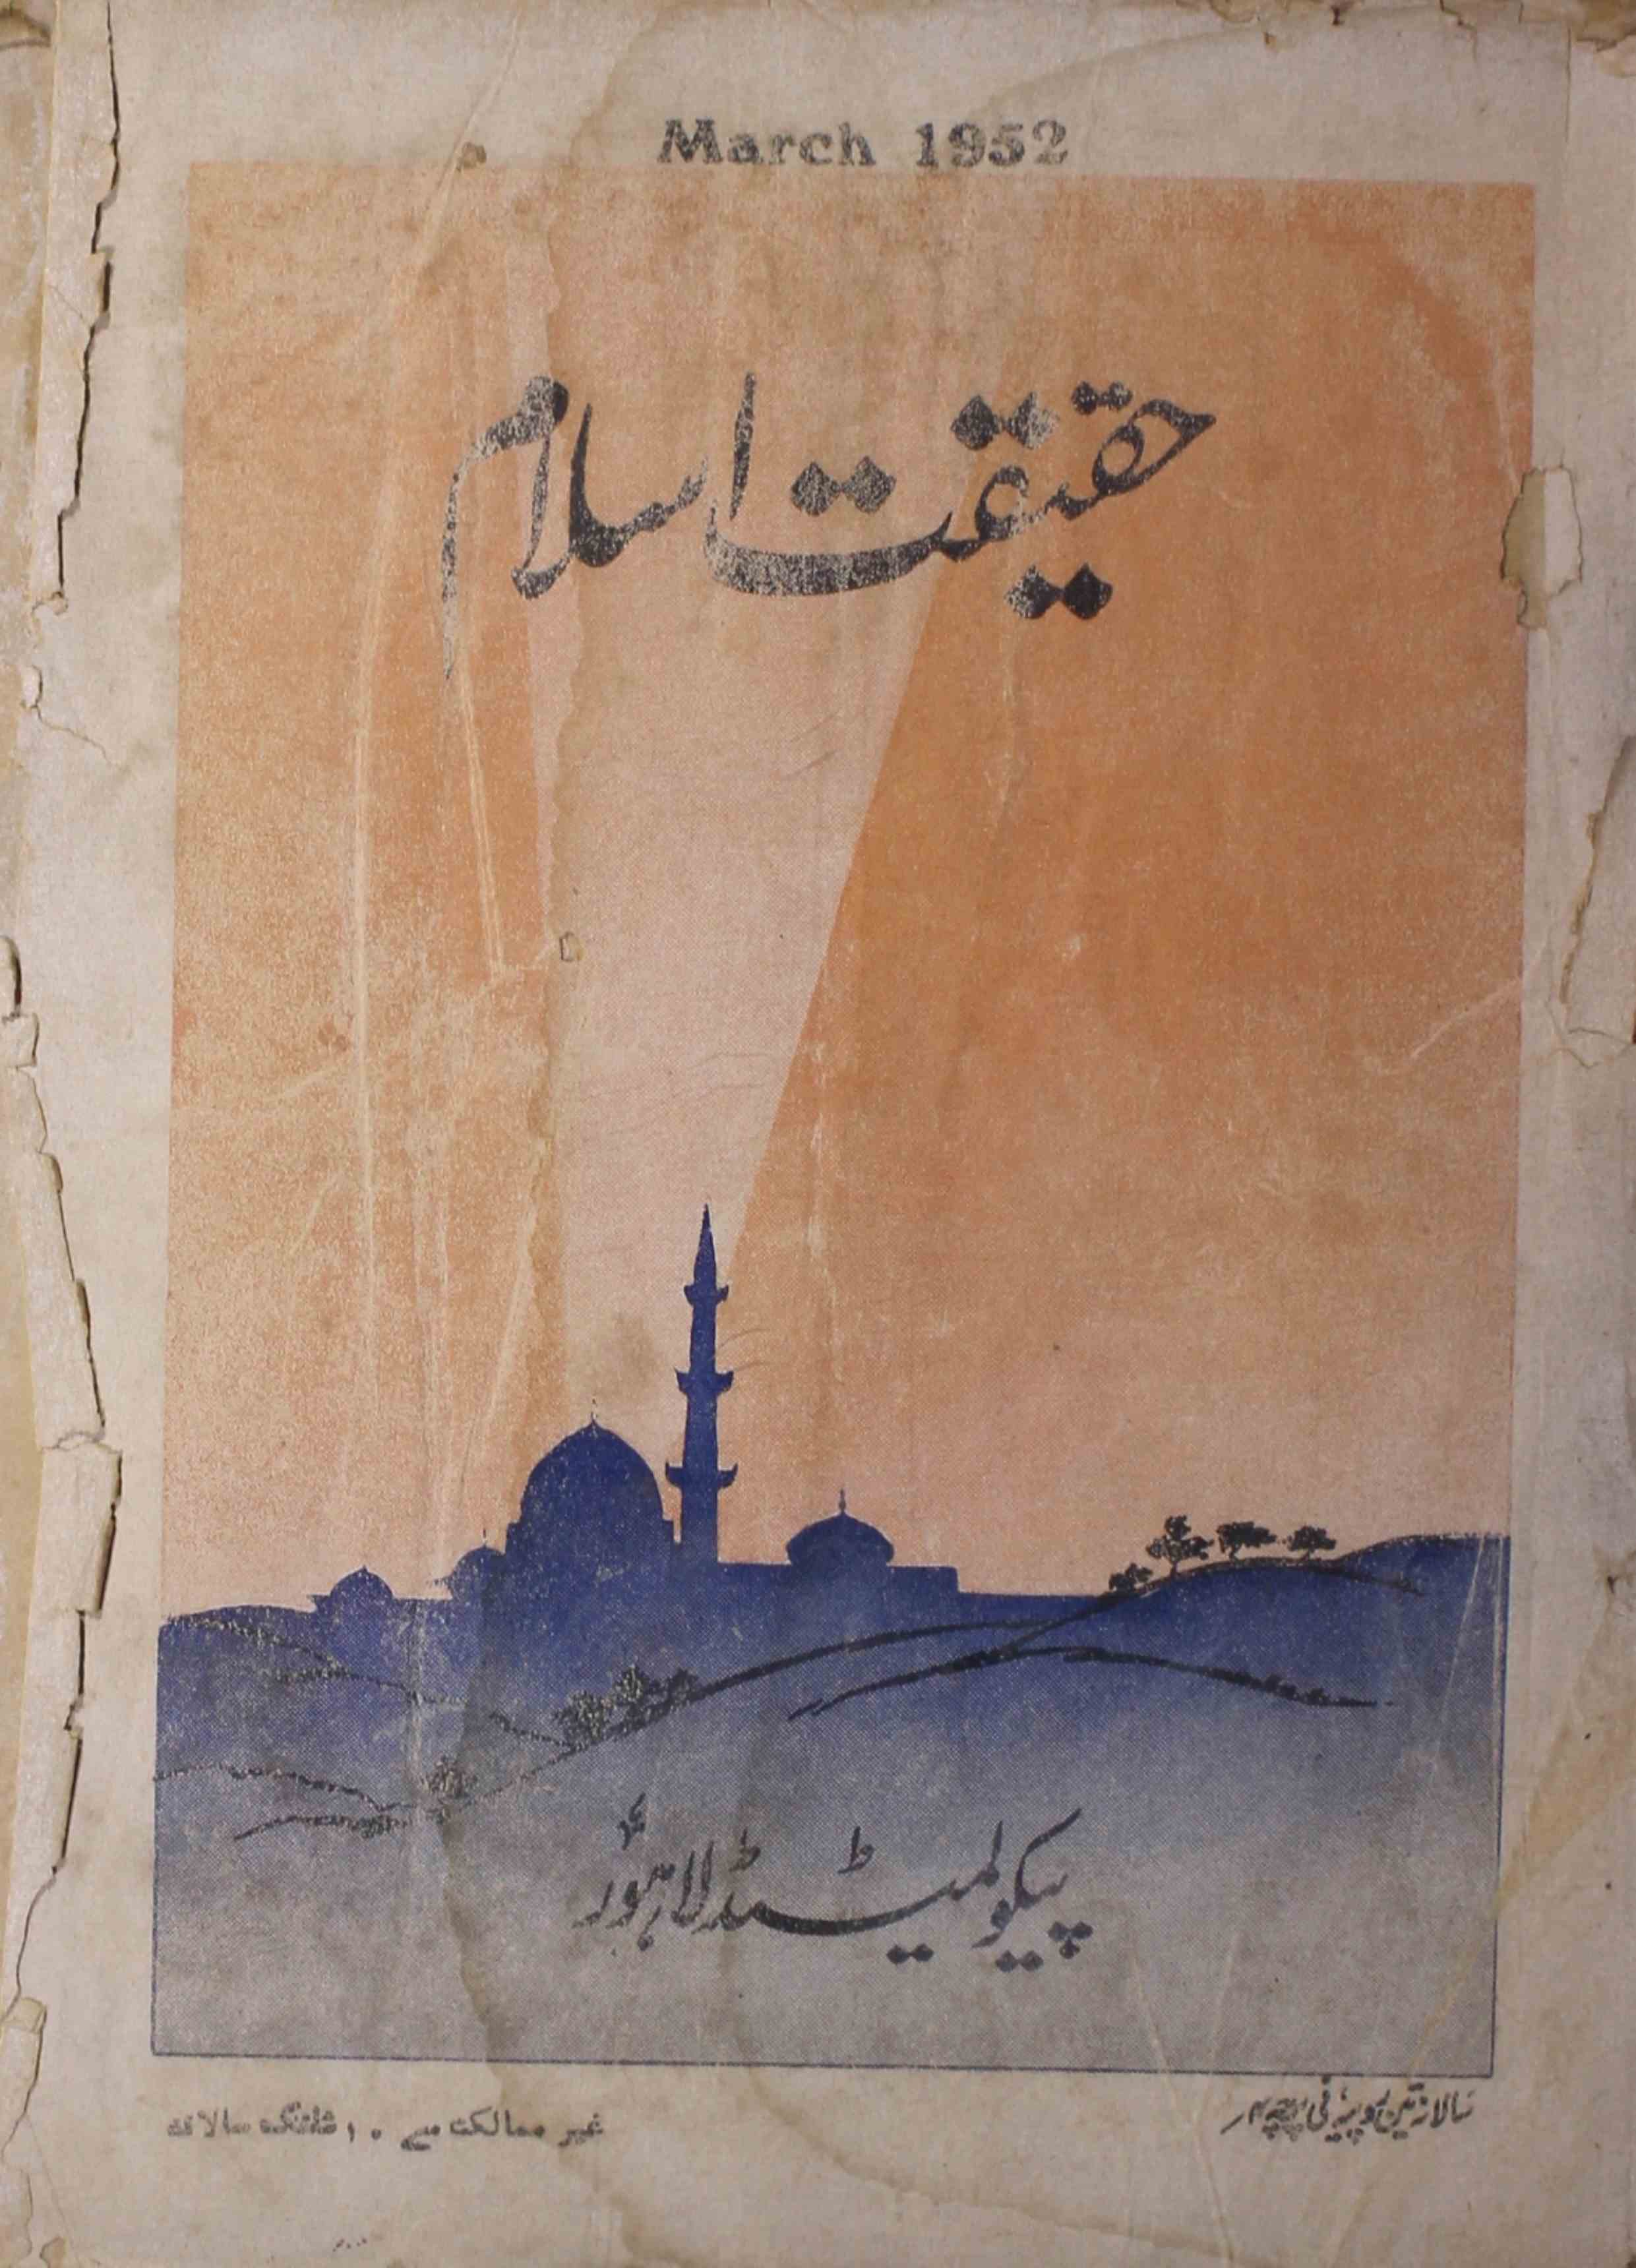 March 1952
حقیقت اسلام
پیکو لمیٹڈ لاہور
سالانہ تین روپے فی پرچہ
غیر ممالک سے ۱۰ شلنگ سالانہ